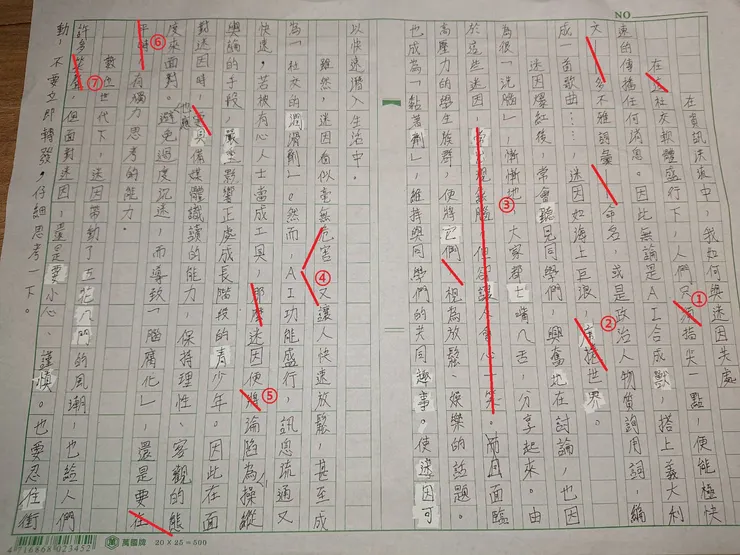 NO.
在資訊洪夜中，我如何與迷因共處
在這社交軟體盛行下，人們只需指尖一點，便能極快
速的傳播任何消息。因此無論是AI合成獸，搭上義大利
文——多不雅詞彙——命名，或是政治人物質詢用詞，編
成一首歌曲……，迷因如海上巨浪，席捲世界。
迷因爆紅後，常會聽見同學們，興奮地在討論，也因
為很「洗腦」，漸漸地，大家都七嘴八舌，分享起來。由
於這些迷因，但卻讓人會心一笑。而且面臨
高壓力的學生族群，便將它們，視為放鬆、娛樂的話題。
也成為「黏著劑」，維持與同學們的共同趣事。使迷因可
以快速潛入生活中。
雖然，迷因看似毫無危害，又讓人快速放鬆，甚至成
為「社交的潤滑劑」。然而，AI功能盛行，訊息流通又
快速，若被有心人士當成工具，那麼迷因便將淪陷為操縱
輿論的手段，嚴重影響正處成長階段的青少年。因此在面
對迷因時，也應需具備媒體識讀的能力，保持理性、客觀的態
度來面對。避免過度沉迷，而導致「腦腐化」，還是要在
平時，有獨力思考的能力。
數位世代下，迷因帶動了五花八門的風潮，也給人們
許多笑聲，但面對迷因，還是要小心、謹慎。也要忍住衝
動，不要立即轉發，仔細思考一下。
①
②
③
④
⑤
⑥
⑦
4716868023452
萬國牌 20×25=500